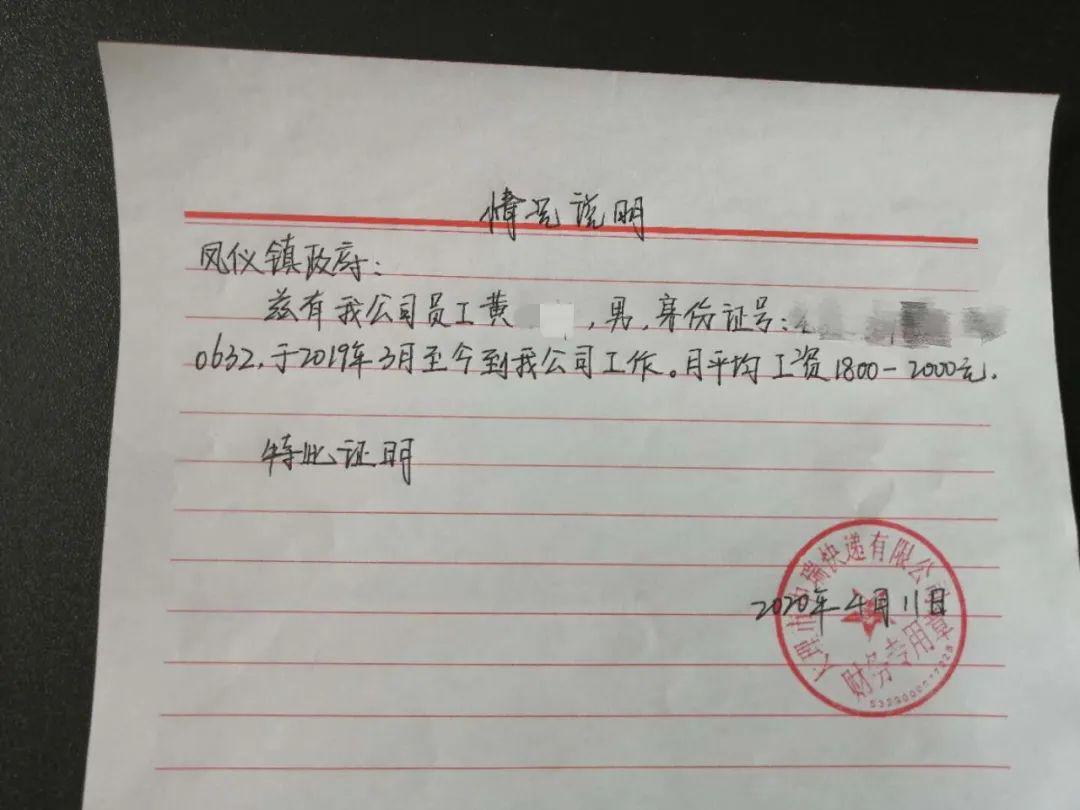 情况说明
凤仪镇政府：
兹有我公司员工黄，男，身份证号：
0632，于2019年3月至今到我公司工作。月平均工资1800－2000元.
特此证明
2020年4月11日
大理市中瑞快递有限公司
财务专用章